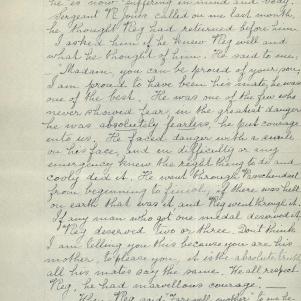 he is now suffering in mind and body.
Sergeant R. Jones called on me last month,
he thought Reg had returned before him
I asked him if he knew Reg well and
what he thought of him. He said to me,
"Madam, you can be proud of your son,
I am proud to have been his mate, he was
one of the best. He was one of the few who
never showed fear, in the greatest danger
he was absolutely fearless, he put courage
into us. He faced danger with a smile
on his face, and in difficulty or any
emergency knew the right thing to do and
cooly did it. He went through Passchendael
from beginning to finish, if there was hell
on earth that was it and Reg went through it.
If any man who got one medal deserved it
Reg deserved two or three. Dont think
I am telling you this because you are his
mother, to please you, it is the absolute truth
all his mates say the same. We all respect
Reg, he had marvellous courage.—
When Reg said "Farewell mother" to me he